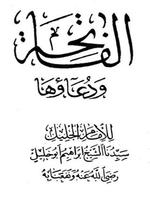 الفاتحة
ودعاؤها
للإمام الجليل
سيدنا الشيخ إبراهيم أبو خليل
رضي الله عنه ونفعنا به